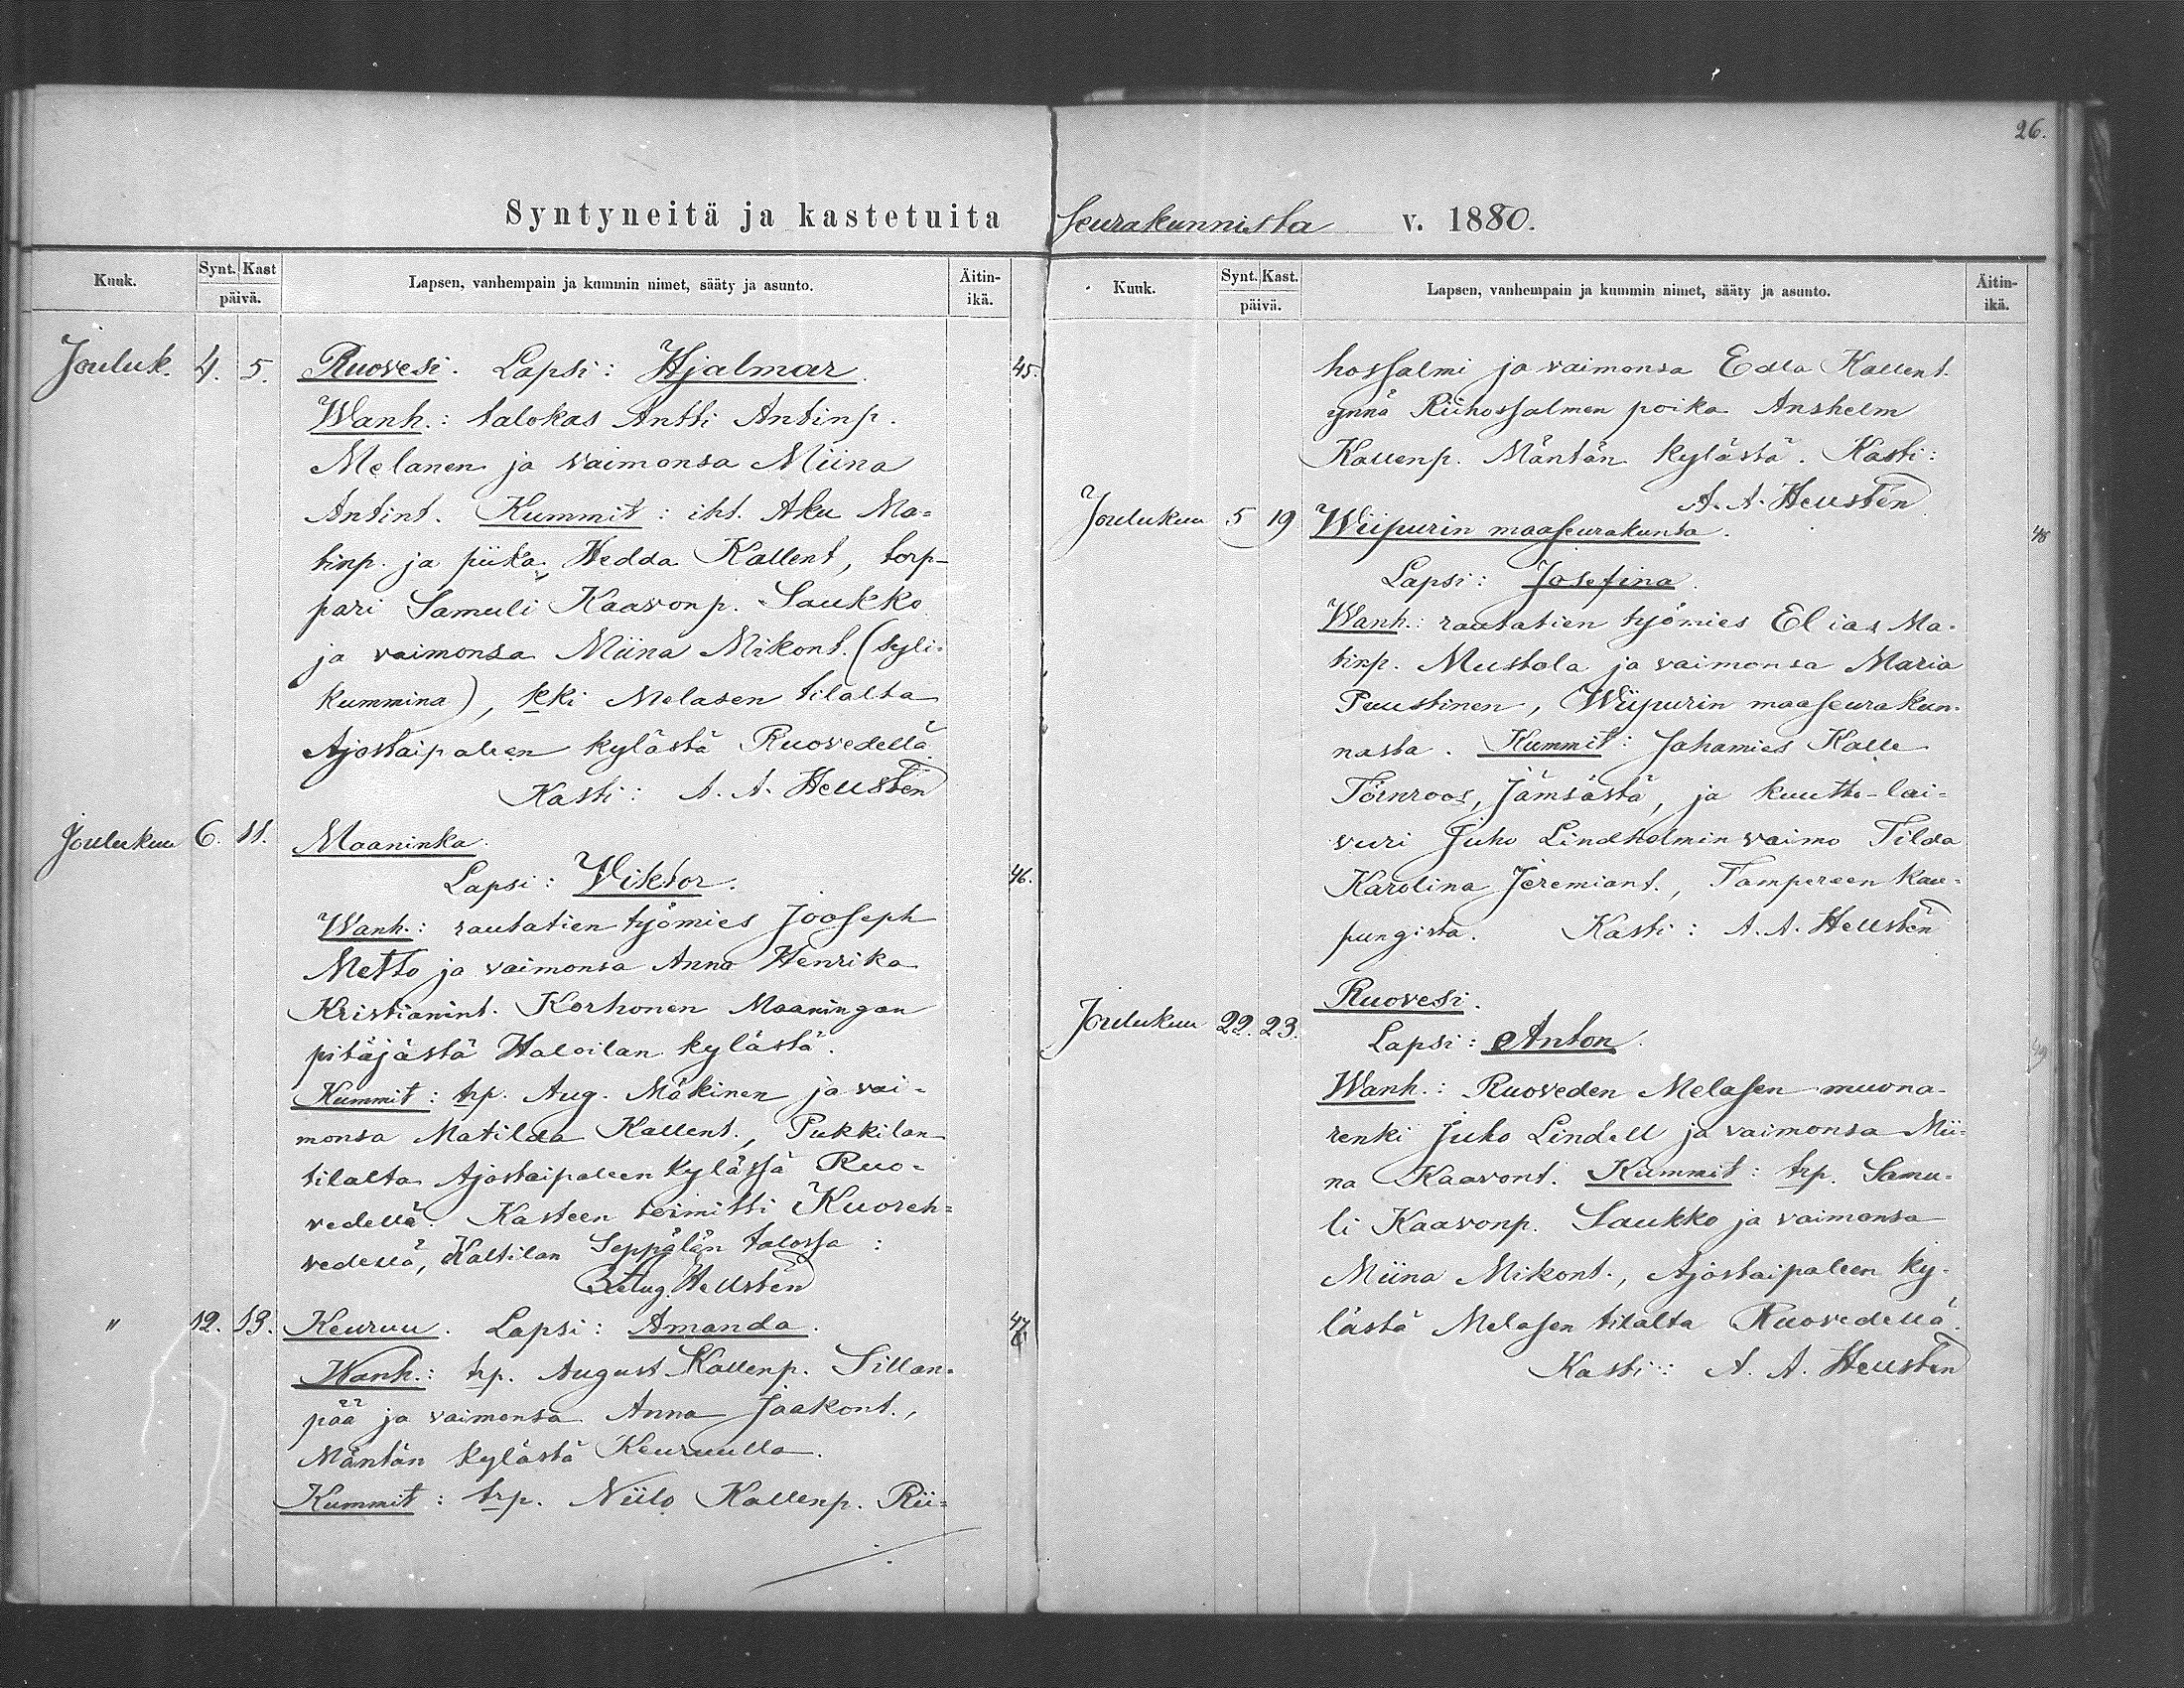 26.
Syntyneitä ja kastetuita seurakunnista v. 1880.
Kuuk. Synt. Kast päivä. Lapsen, vanhempain ja kummin nimet, sääty ja asunto. Äitin-ikä.
Jouluk. 4. 5. Ruovesi. Lapsi: Hjalmar. 45.
Wanh.: talokas Antti Antinp.
Melanen ja vaimonsa Miina
Antint. Kummit: iht. Aku Ma-
tinp. ja piika Hedda Kallent, torp-
pari Samuli Kaavonp. Saukko
ja vaimonsa Miina Mikont. (syli-
kummina), kki Melasen tilalta
Ajostaipaleen kylästä Ruovedellä
Kasti: A. A. Hellstén
Joulukuu 6. 11. Maaninka.
Lapsi: Viktor. 46.
Wanh.: rautatien työmies Jooseph
Metto ja vaimonsa Anna Henrika
Kristianint. Korhonen Maaningan
pitäjästä Haloilan kylästä.
Kummit: trp. Aug. Mäkinen ja vai-
monsa Matilda Kallent., Pukkilan
tilalta Ajostaipaleen kylässä Ruo-
vedellä. Kasteen toimitti Kuoreh-
vedellä, Kaltilan Seppälän talossa:
Aug. Hellstén
" 12. 13. Keuruu. Lapsi: Amanda. 47
Wanh.: trp. August Kallenp. Sillan-
pää ja vaimonsa Anna Jaakont.,
Mäntän kylästä Keuruulla.
Kummit: trp. Niilo Kallenp. Rii-
Kuuk. Synt. Kast. päivä. Lapsen, vanhempain ja kummin nimet, sääty ja asunto. Äitin-ikä.
hossalmi ja vaimonsa Edla Kallent.
ynnä Riihossalmen poika Anshelm
Kallenp. Mäntän kylästä. Kasti:
A. A. Hellstén
Joulukuu 5 19 Wiipurin maaseurakunta. 48
Lapsi: Josefina.
Wanh.: rautatien työmies Elias Ma-
tinp. Mustola ja vaimonsa Maria
Puustinen, Wiipurin maaseurakun-
nasta. Kummit: Sahamies Kalle
Törnroos, Jämsästä, ja kuutti-lai-
vuri Juho Lindholmin vaimo Tilda
Karolina Jeremiant., Tampereen kau-
pungista. Kasti: A. A. Hellstén
Ruovesi.
Joulukuu 22. 23. Lapsi: Anton. 49
Wanh.: Ruoveden Melasen muona-
renki Juho Lindell ja vaimonsa Mii-
na Kaavont. Kummit: trp. Samu-
li Kaavonp. Saukko ja vaimonsa
Miina Mikont., Ajostaipaleen ky-
lästä Melasen tilalta Ruovedellä.
Kasti: A. A. Hellstén